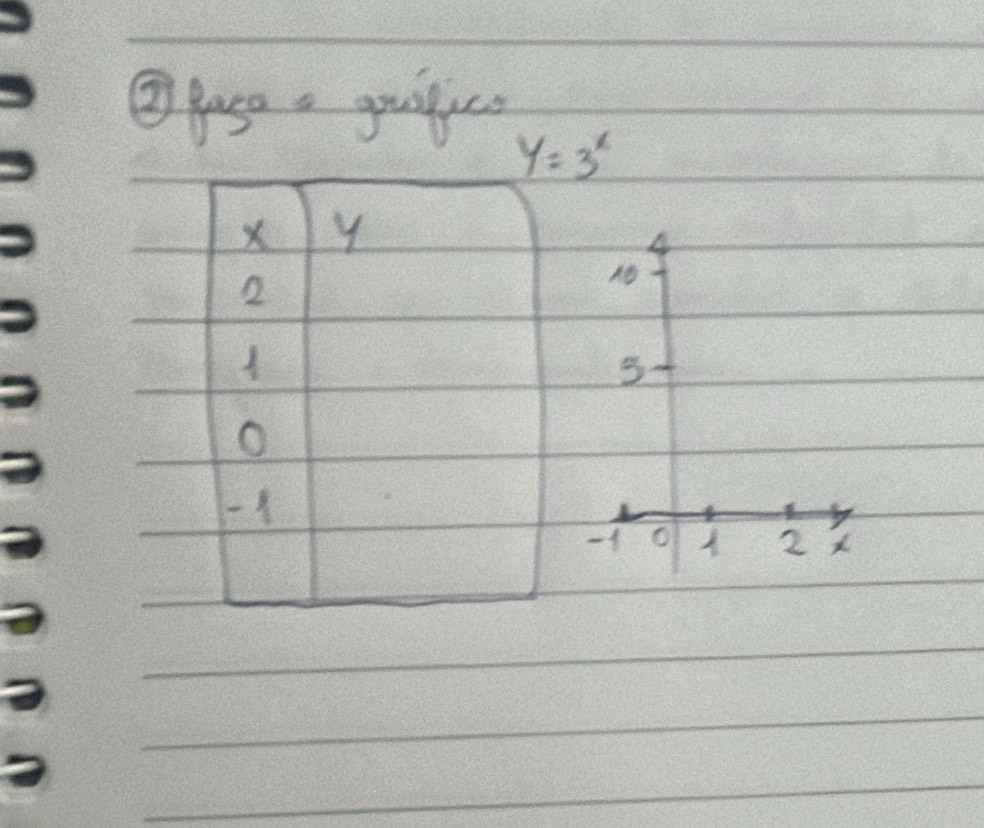 ② faça o gráfico
Y = 3ˣ
x Y
2
1
0
-1
10
5
-1 0 1 2 x